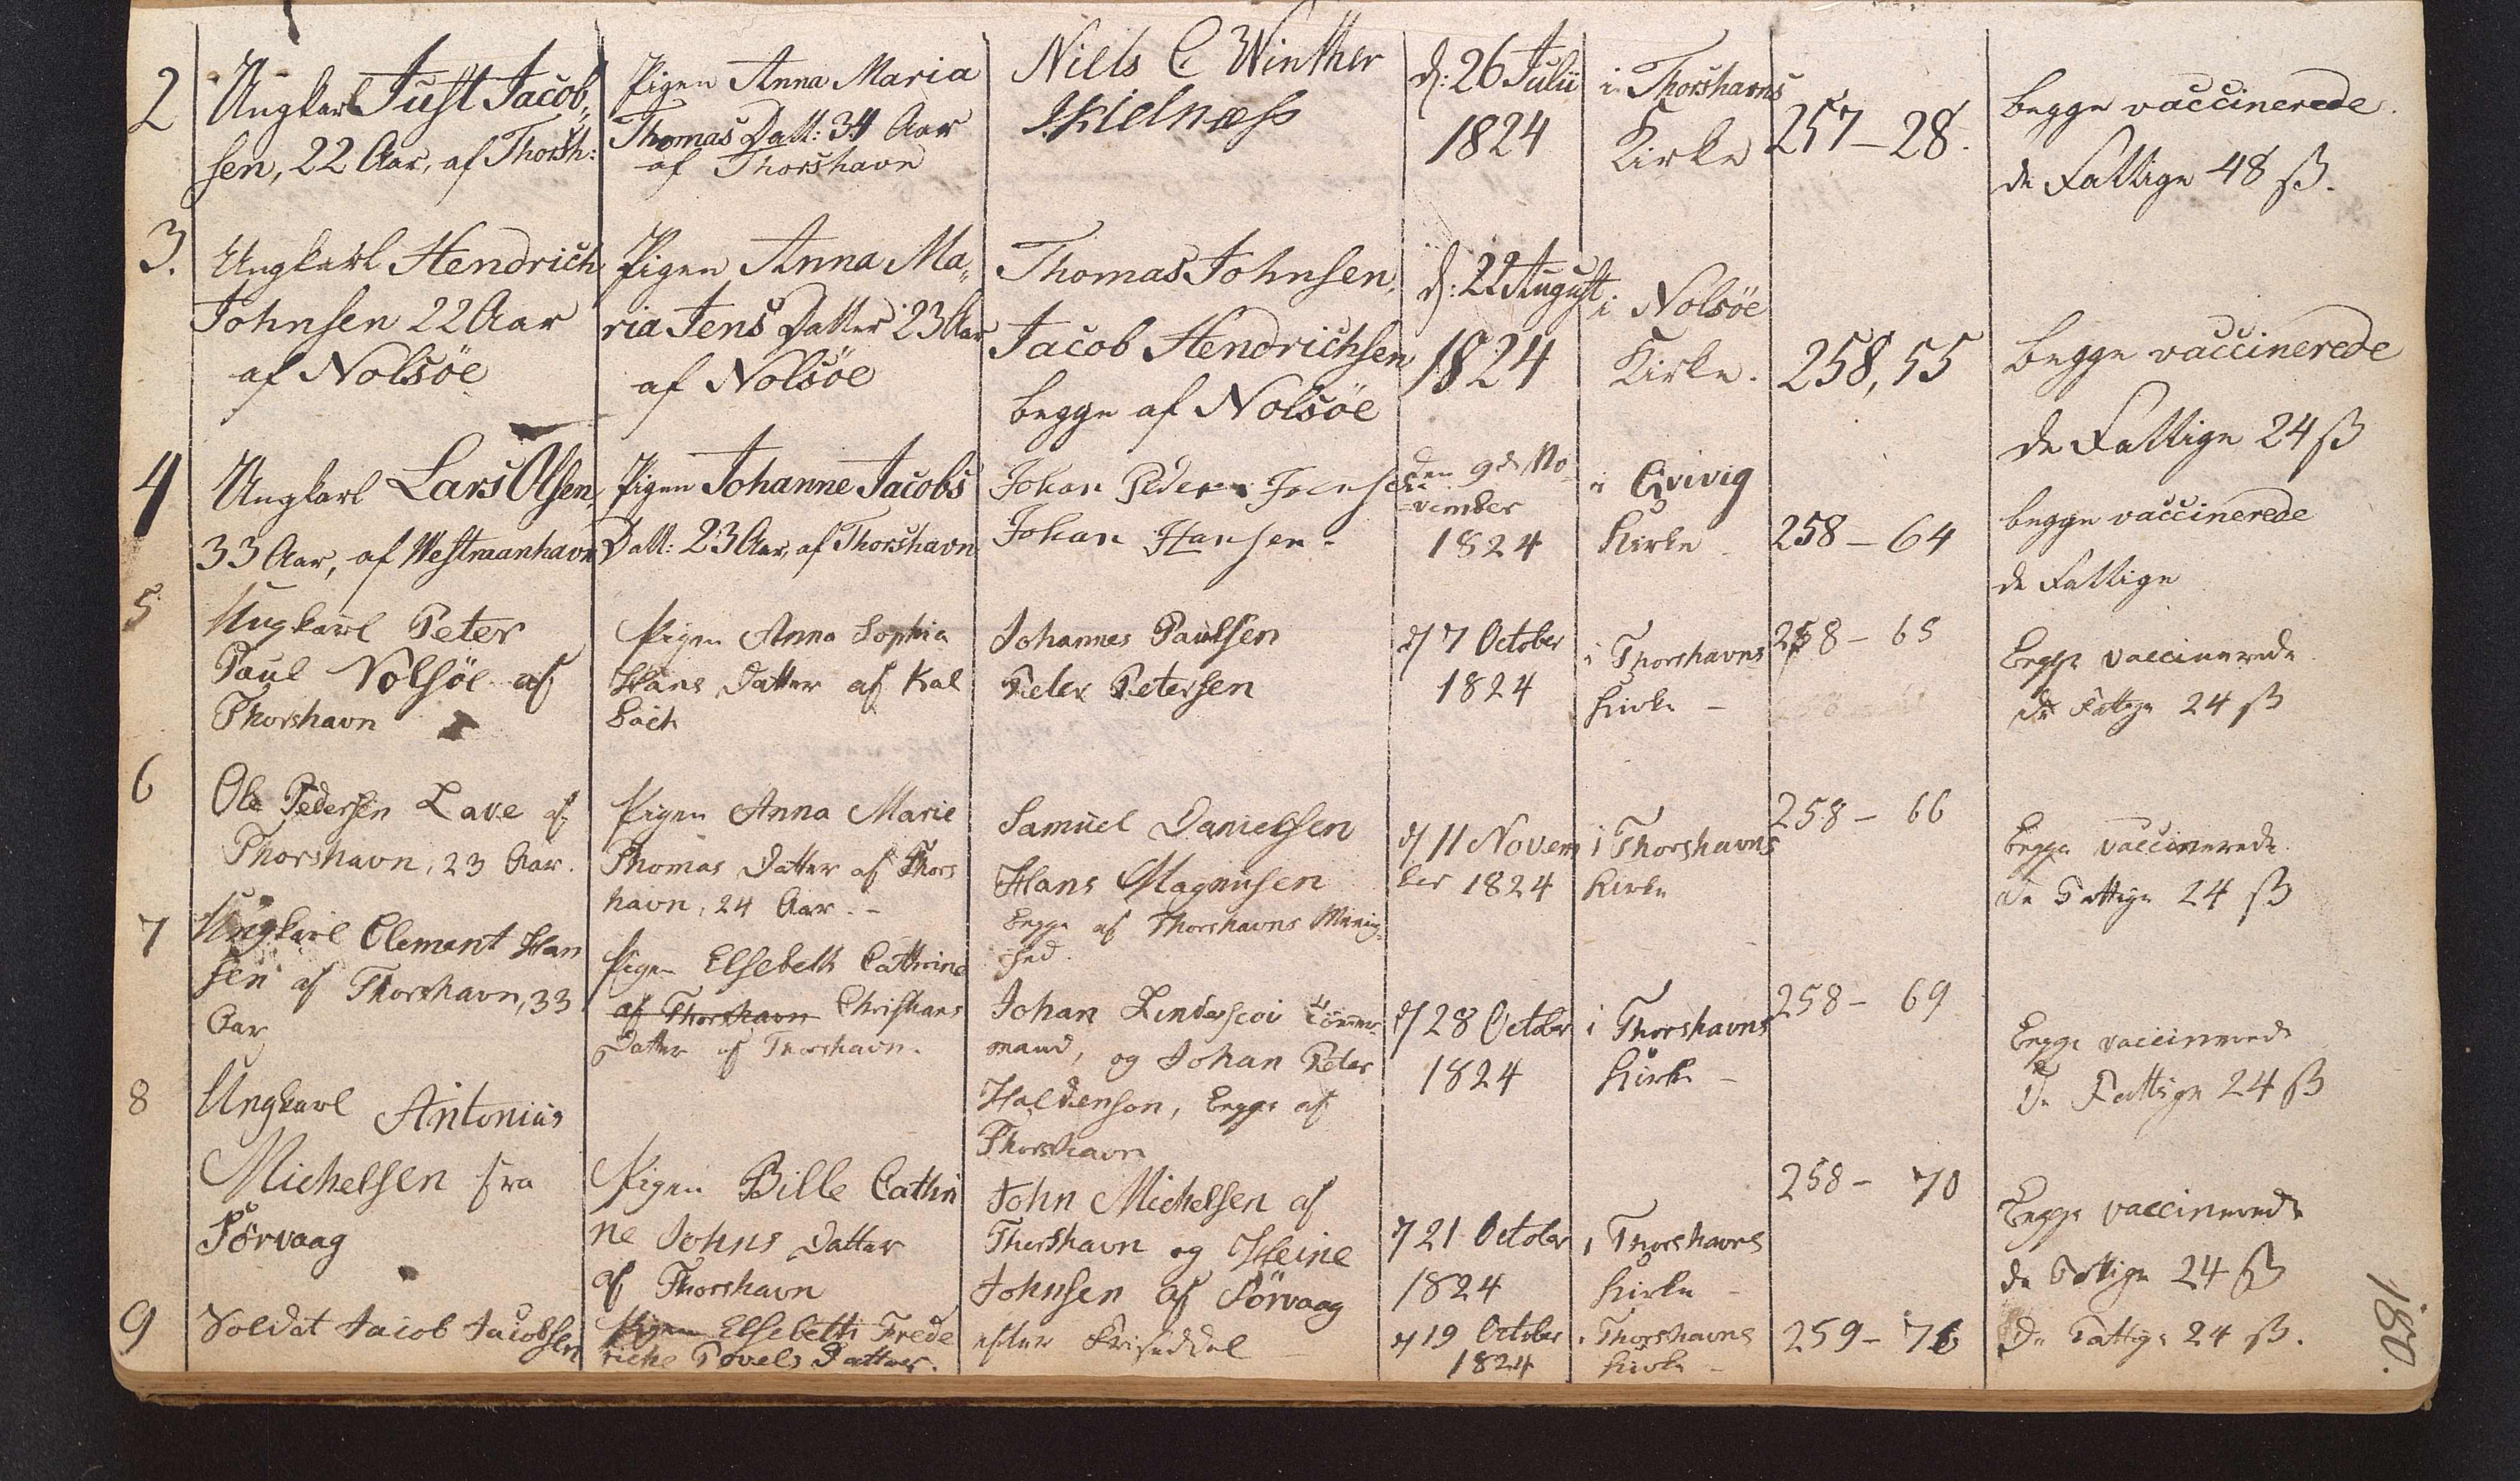 2
Ungkarl Just Jacob„
sen, 22 Aar, af Thorsh:
Pigen Anna Maria
Thomas Datt: 34 Aar
af Thorshavn
Niels C Winther
Skielness
d: 26 Julii
1824
i Thorshavns
Kirke
257 – 28.
begge vaccinerede.
de Fattige 48 ß.
3.
Ungkarl Hendrich
Johnsen 22 Aar
af Nolsöe
Pigen Anna Ma„
ria Jens Datter 23 Aar
af Nolsöe
Thomas Johnsen,
Jacob Hendrichsen
begge af Nolsöe
d: 22 August
1824
i Nolsöe
Kirke.
258, 55
begge vaccinerede
de Fattige 24 ß
4
Ungkarl Lars Olsen,
33 Aar, af Westmanhavn
Pigen Johanne Jacobs
Datt: 23 Aar, af Thorshavn
Johan Peder
Johan Hansen –
den 9de No
vember
1824
i Qvivig
Kirke
258 – 64
begge vaccinerede
de Fattige
5
Ungkarl Peter
Paul Nolsöe af
Thorshavn
Pigen Anna Sophia
Hans Datter af Kal
bach
Johannes Paulsen
Peter Petersen
d 7 October
1824
i Thorshavns
Kirke –
258 – 65
Begge vaccinerede
de Fattige 24 ß
6
Ole Pedersen Lave af
Thorshavn, 23 Aar.
Pigen Anna Marie
Thomas Datter af Thors
havn, 24 Aar. –
Samuel Danielsen
Hans Magnusen
Begge af Thorshavns Menig„
hed.
d 11 Novem
ber 1824
i Thorshavns
Kirke
258 – 66
Begge vaccinerede
de Fattige 24 ß
7
Ungkarl Clement Han
sen af Thorshavn, 33
Aar
Pigen Elsebeth Cathrine
af Thorshavn Christians
Datter af Thorshavn.
Johan Tömmer
mand, og Johan Peter
Haldenson, begge af
Thorshavn
d 28 October
1824
i Thorshavns
Kirke –
258 – 69
Begge vaccinerede
de Fattige 24 ß
8
Ungkarl Antonius
Michelsen fra
Sörvaag
Pigen Bille Cathri
ne Johns Datter
af Thorshavn
John Michelsen af
Thorshavn og Heine
Johnsen af Sörvaag
d 21 October
1824
i Thorshavns
Kirke –
258 – 70
Begge vaccinerede
de Fattige 24 ß
9
Soldat Jacob Jacobsen
Pigen Elsebeth Frede
riche Povels Datter.
efter Friseddel
d 19 October
1824
i Thorshavns
Kirke –
259 – 76
De Fattige 24 ß.
180.